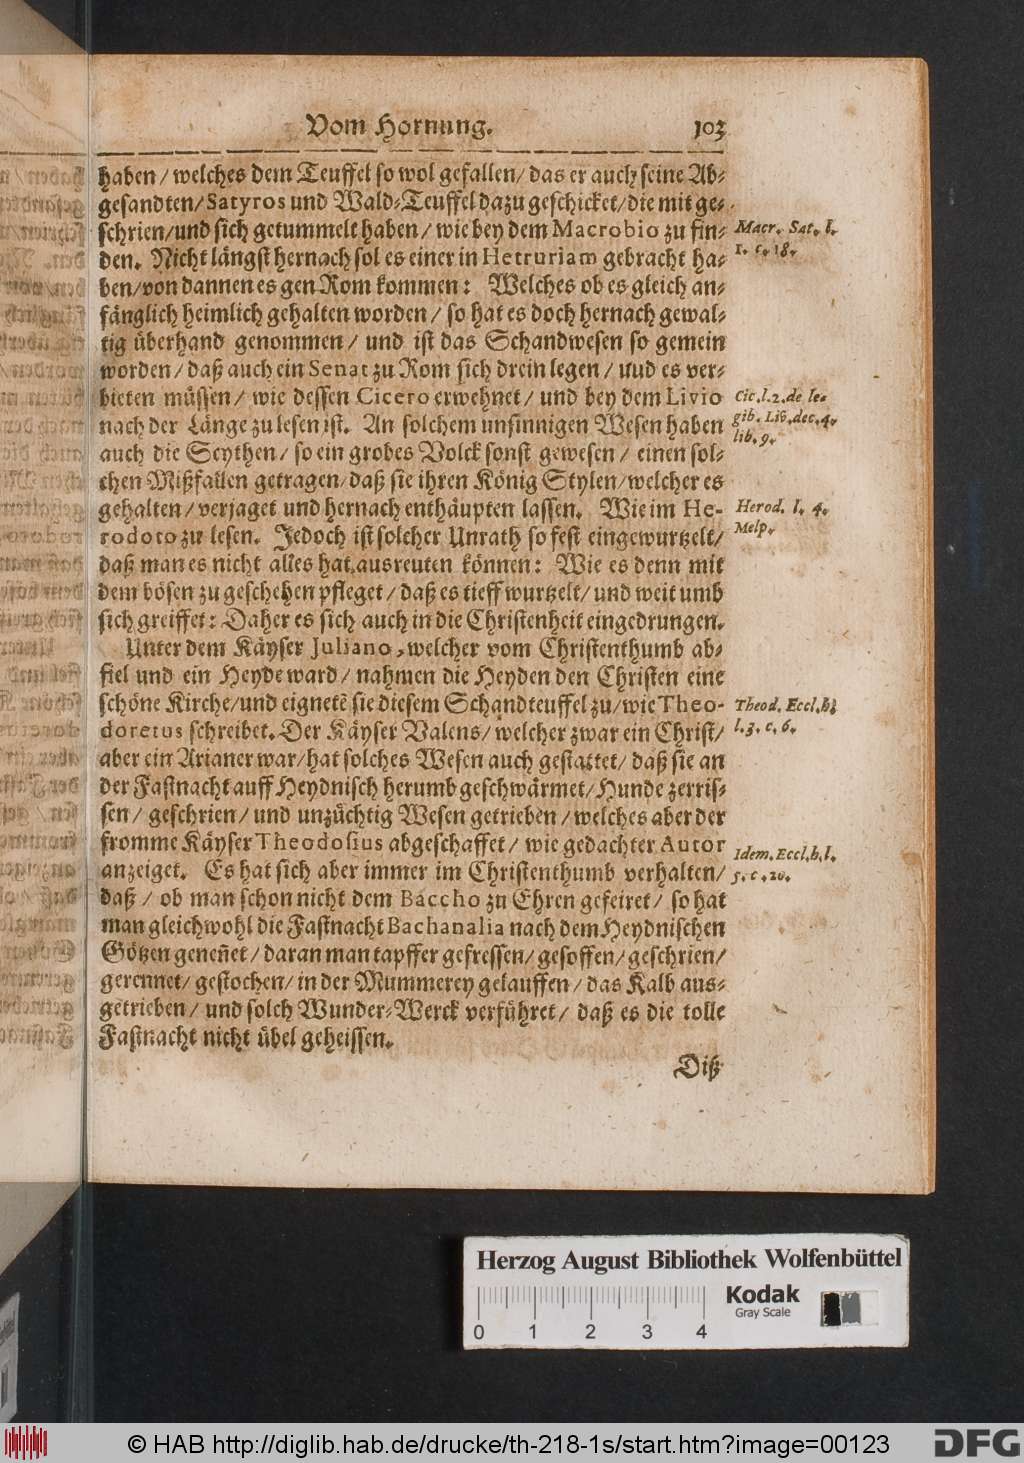 Vom Hornung. 103
haben / welches dem Teuffel so wol gefallen / das er auch seine Ab-
gesandten / Satyros und Wald-Teuffel dazu geschicket / die mit ge-
schrien / und sich getummelt haben / wie bey dem Macrobio zu fin-
Macr. Sat. l.
1. c. 18.
den. Nicht längst hernach sol es einer in Hetruriam gebracht ha-
ben / von dannen es gen Rom kommen: Welches ob es gleich an-
fänglich heimlich gehalten worden / so hat es doch hernach gewal-
tig überhand genommen / und ist das Schandwesen so gemein
worden / daß auch ein Senat zu Rom sich drein legen / uud es ver-
bieten müssen / wie dessen Cicero erwehnet / und bey dem Livio
Cic. l. 2. de le-
gib. Liv. dec. 4.
lib. 9.
nach der Länge zu lesen ist. An solchem unsinnigen Wesen haben
auch die Scythen / so ein grobes Volck sonst gewesen / einen sol-
chen Mißfallen getragen / daß sie ihren König Stylen / welcher es
gehalten / verjaget und hernach enthäupten lassen. Wie im He-
Herod. l. 4.
Melp.
rodoto zu lesen. Jedoch ist solcher Unrath so fest eingewurtzelt /
daß man es nicht alles hat ausreuten können: Wie es denn mit
dem bösen zu geschehen pfleget / daß es tieff wurtzelt / und weit umb
sich greiffet: Daher es sich auch in die Christenheit eingedrungen.
Unter dem Käyser Juliano, welcher vom Christenthumb ab-
fiel und ein Heyde ward / nahmen die Heyden den Christen eine
schöne Kirche / und eignetẽ sie diesem Schandteuffel zu / wie Theo-
Theod. Eccl. h.
l. 3. c. 6.
doretus schreibet. Der Käyser Valens / welcher zwar ein Christ /
aber ein Arianer war / hat solches Wesen auch gestattet / daß sie an
der Fastnacht auff Heydnisch herumb geschwärmet / Hunde zerris-
sen / geschrien / und unzüchtig Wesen getrieben / welches aber der
fromme Käyser Theodosius abgeschaffet / wie gedachter Autor
Idem. Eccl. h. l.
5. c. 20.
anzeiget. Es hat sich aber immer im Christenthumb verhalten /
daß / ob man schon nicht dem Baccho zu Ehren gefeiret / so hat
man gleichwohl die Fastnacht Bachanalia nach dem Heydnischen
Götzen geneñet / daran man tapffer gefressen / gesoffen / geschrien /
gerennet / gestochen / in der Mummerey gelauffen / das Kalb aus-
getrieben / und solch Wunder-Werck verführet / daß es die tolle
Fastnacht nicht übel geheissen.
Diß
Herzog August Bibliothek Wolfenbüttel
0 1 2 3 4
Kodak
Gray Scale
© HAB http://diglib.hab.de/drucke/th-218-1s/start.htm?image=00123
DFG